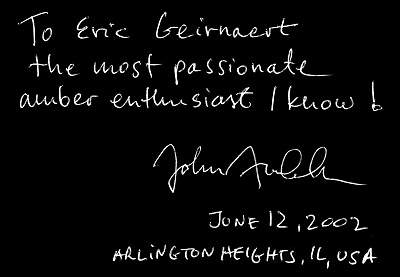 To Eric Geirnaert
the most passionate
amber enthusiast I know!
John
JUNE 12, 2002
ARLINGTON HEIGHTS, IL, USA